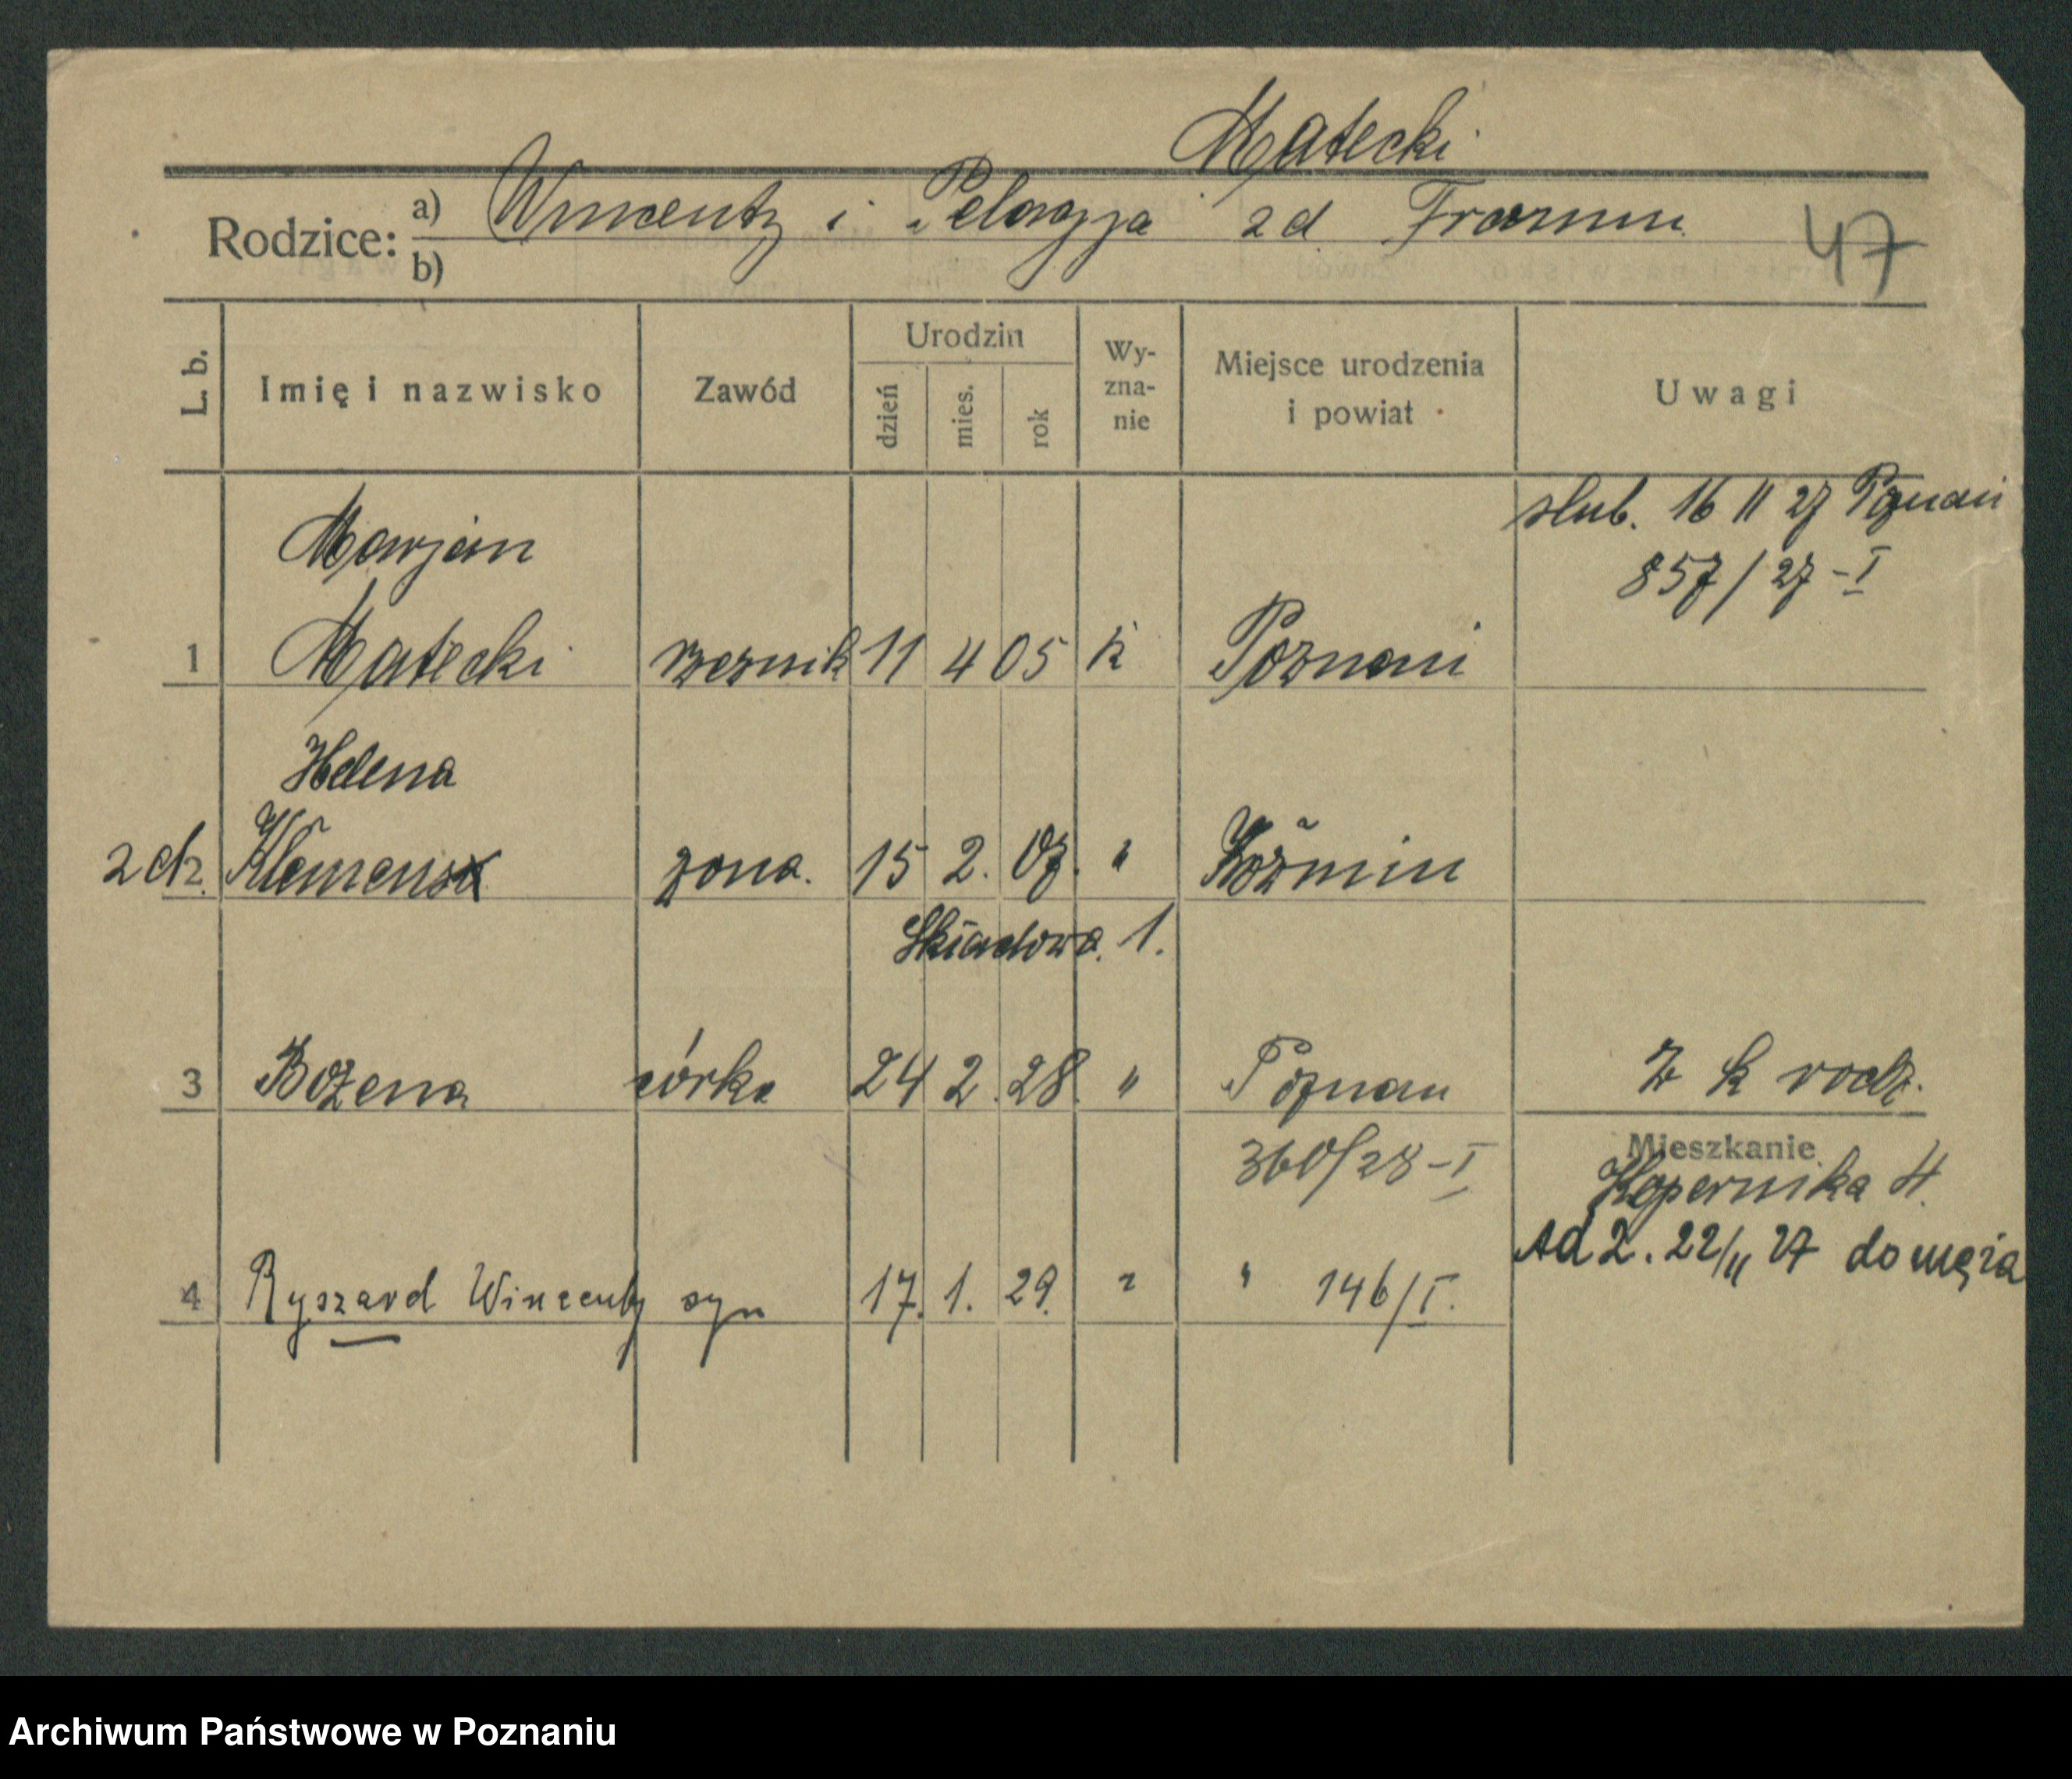 Matecki
Rodzice: a) Wincenty i Pelagja zd
b)
47
L. b. Imię i nazwisko Zawód Urodzin dzień mies. rok Wy-zna-nie Miejsce urodzenia i powiat Uwagi
slub. 16 11 27 Poznań
857/27-I
Marjan
1 Matecki rzeznik 11 4 05 k Poznań
Helena
2 zona. 15 2. 07. " Koźmin
Składowa. 1.
3 Bożena córka 24 2. 28. " Poznan z k rodz.
360/28-I
Mieszkanie
Kopernika 4.
Ad 2. 22/11 27 do męża
4 Ryszard Wincenty syn 17. 1. 29. " " 146/I.
Archiwum Państwowe w Poznaniu